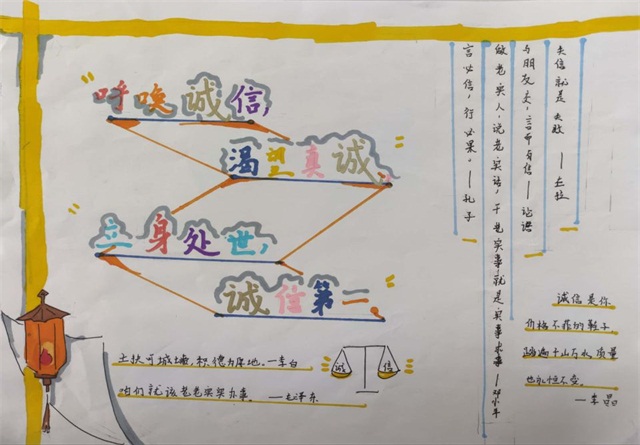 呼唤诚信,
渴望真诚,
立身处世,
诚信第二
失信就是失败——左拉
与朋友交,言而有信——论语
做老实人,说老实话,干老实事就是实事求是——邓小平
言必信,行必果。——孔子
土扶可城墉,积德为厚地。——李白
咱们就该老老实实办事。——毛泽东
诚 信
诚信是你
价格不菲的鞋子
踏遍千山万水质量
也永恒不变。